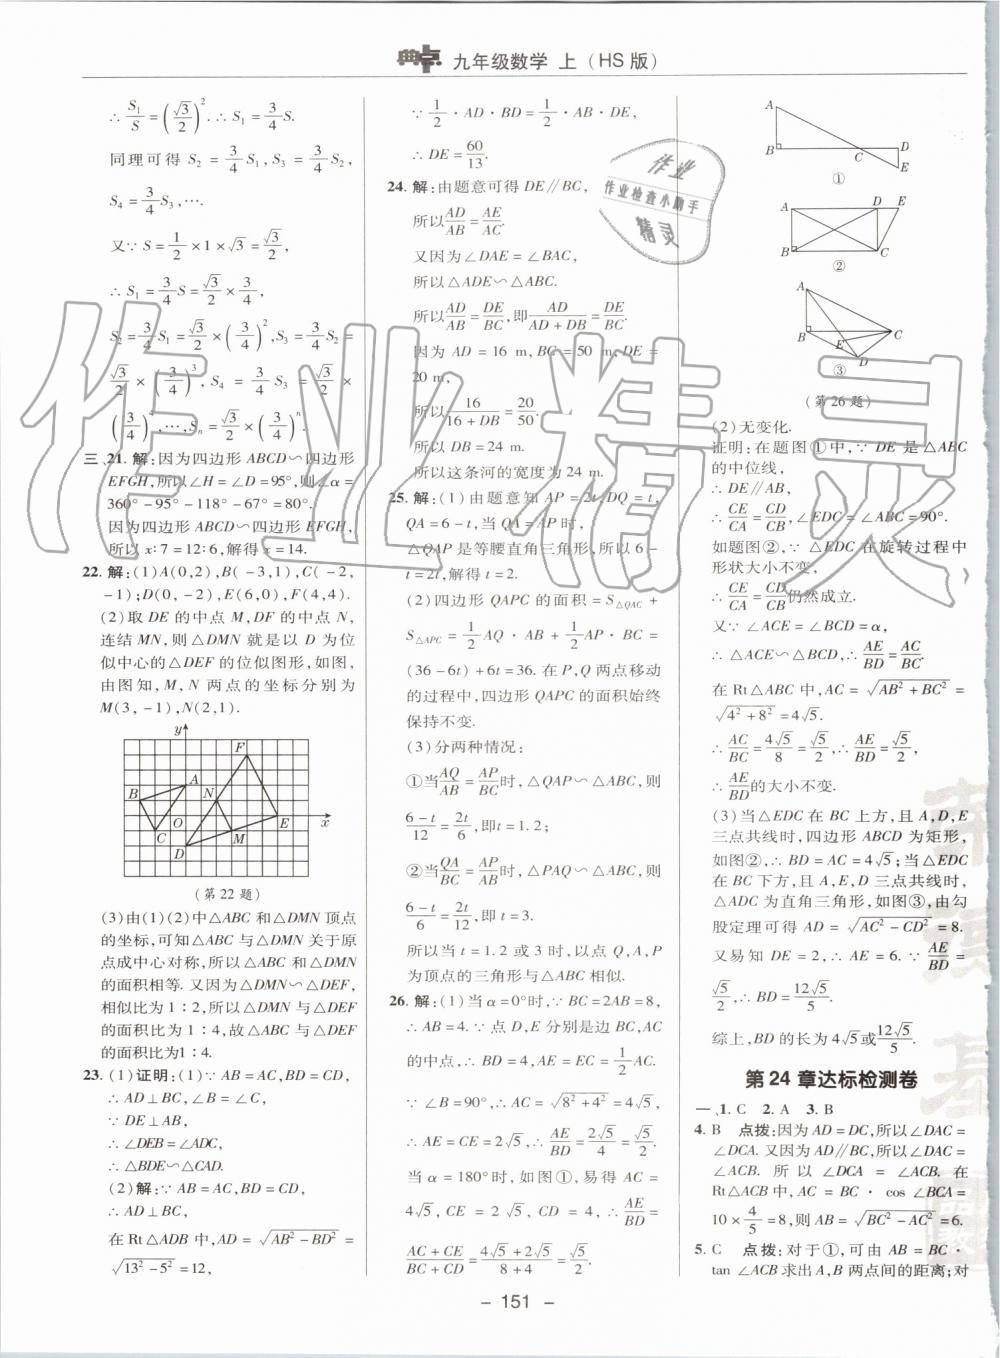 典中点 九年级数学 上(HS版)
∴S₁/S=(√3/2)². ∴S₁=3/4 S.
同理可得 S₂=3/4 S₁,S₃=3/4 S₂,
S₄=3/4 S₃,….
又∵S=1/2×1×√3=√3/2,
∴S₁=3/4 S=√3/2×3/4,
S₂=3/4 S₁=√3/2×(3/4)²,S₃=3/4 S₂=
√3/2×(3/4)³,S₄=3/4 S₃=√3/2×
(3/4)⁴,…,Sₙ=√3/2×(3/4)ⁿ.
三、21. 解:因为四边形ABCD∽四边形
EFGH,所以∠H=∠D=95°,则∠α=
360°-95°-118°-67°=80°.
因为四边形ABCD∽四边形EFGH,
所以x:7=12:6,解得x=14.
22. 解:(1)A(0,2),B(-3,1),C(-2,
-1);D(0,-2),E(6,0),F(4,4).
(2)取DE的中点M,DF的中点N,
连结MN,则△DMN就是以D为位
似中心的△DEF的位似图形,如图,
由图知,M,N两点的坐标分别为
M(3,-1),N(2,1).
y F A B N O E x C M D
(第22题)
(3)由(1)(2)中△ABC和△DMN顶点
的坐标,可知△ABC与△DMN关于原
点成中心对称,所以△ABC与△DMN
的面积相等. 又因为△DMN∽△DEF,
相似比为1:2,所以△DMN与△DEF
的面积比为1:4,故△ABC与△DEF
的面积比为1:4.
23. (1)证明:(1)∵AB=AC,BD=CD,
∴AD⊥BC,∠B=∠C,
∵DE⊥AB,
∴∠DEB=∠ADC,
∴△BDE∽△CAD.
(2)解:∵AB=AC,BD=CD,
∴AD⊥BC,
在Rt△ADB中,AD=√(AB²-BD²)=
√(13²-5²)=12,
∵1/2·AD·BD=1/2·AB·DE,
∴DE=60/13.
24. 解:由题意可得DE∥BC,
所以AD/AB=AE/AC.
又因为∠DAE=∠BAC,
所以△ADE∽△ABC.
所以AD/AB=DE/BC,即AD/(AD+DB)=DE/BC.
因为AD=16 m,BC=50 m,DE=
20 m,
所以16/(16+DB)=20/50.
所以DB=24 m.
所以这条河的宽度为24 m.
25. 解:(1)由题意知AP=2t,DQ=t,
QA=6-t,当QA=AP时,
△QAP是等腰直角三角形,所以6-
t=2t,解得t=2.
(2)四边形QAPC的面积=S△QAC+
S△APC=1/2 AQ·AB+1/2 AP·BC=
(36-6t)+6t=36. 在P,Q两点移动
的过程中,四边形QAPC的面积始终
保持不变.
(3)分两种情况:
①当AQ/AB=AP/BC时,△QAP∽△ABC,则
(6-t)/12=2t/6,即t=1.2;
②当QA/BC=AP/AB时,△PAQ∽△ABC,则
(6-t)/6=2t/12,即t=3.
所以当t=1.2或3时,以点Q,A,P
为顶点的三角形与△ABC相似.
26. 解:(1)当α=0°时,∵BC=2AB=8,
∴AB=4. ∵点D,E分别是边BC,AC
的中点,∴BD=4,AE=EC=1/2 AC.
∵∠B=90°,∴AC=√(8²+4²)=4√5,
∴AE=CE=2√5,∴AE/BD=2√5/4=√5/2.
当α=180°时,如图①,易得AC=
4√5,CE=2√5,CD=4,∴AE/BD=
(AC+CE)/(BC+CD)=(4√5+2√5)/(8+4)=√5/2.
A B C D E
①
A D E B C
②
A B C E D
③
(第26题)
(2)无变化.
证明:在题图①中,∵DE是△ABC
的中位线,
∴DE∥AB,
∴CE/CA=CD/CB,∠EDC=∠ABC=90°.
如题图②,∵△EDC在旋转过程中
形状大小不变,
∴CE/CA=CD/CB仍然成立.
又∵∠ACE=∠BCD=α,
∴△ACE∽△BCD,∴AE/BD=AC/BC.
在Rt△ABC中,AC=√(AB²+BC²)=
√(4²+8²)=4√5.
∴AC/BC=4√5/8=√5/2,∴AE/BD=√5/2,
∴AE/BD的大小不变.
(3)当△EDC在BC上方,且A,D,E
三点共线时,四边形ABCD为矩形,
如图②,∴BD=AC=4√5;当△EDC
在BC下方,且A,E,D三点共线时,
△ADC为直角三角形,如图③,由勾
股定理可得AD=√(AC²-CD²)=8.
又易知DE=2,∴AE=6. ∵AE/BD=
√5/2,∴BD=12√5/5.
综上,BD的长为4√5或12√5/5.
第24章达标检测卷
一、1. C 2. A 3. B
4. B 点拨:因为AD=DC,所以∠DAC=
∠DCA. 又因为AD∥BC,所以∠DAC=
∠ACB. 所以∠DCA=∠ACB. 在
Rt△ACB中,AC=BC·cos ∠BCA=
10×4/5=8,则AB=√(BC²-AC²)=6.
5. C 点拨:对于①,可由AB=BC·
tan ∠ACB求出A,B两点间的距离;对
- 151 -
作业精灵
作业
作业检查小助手
精灵